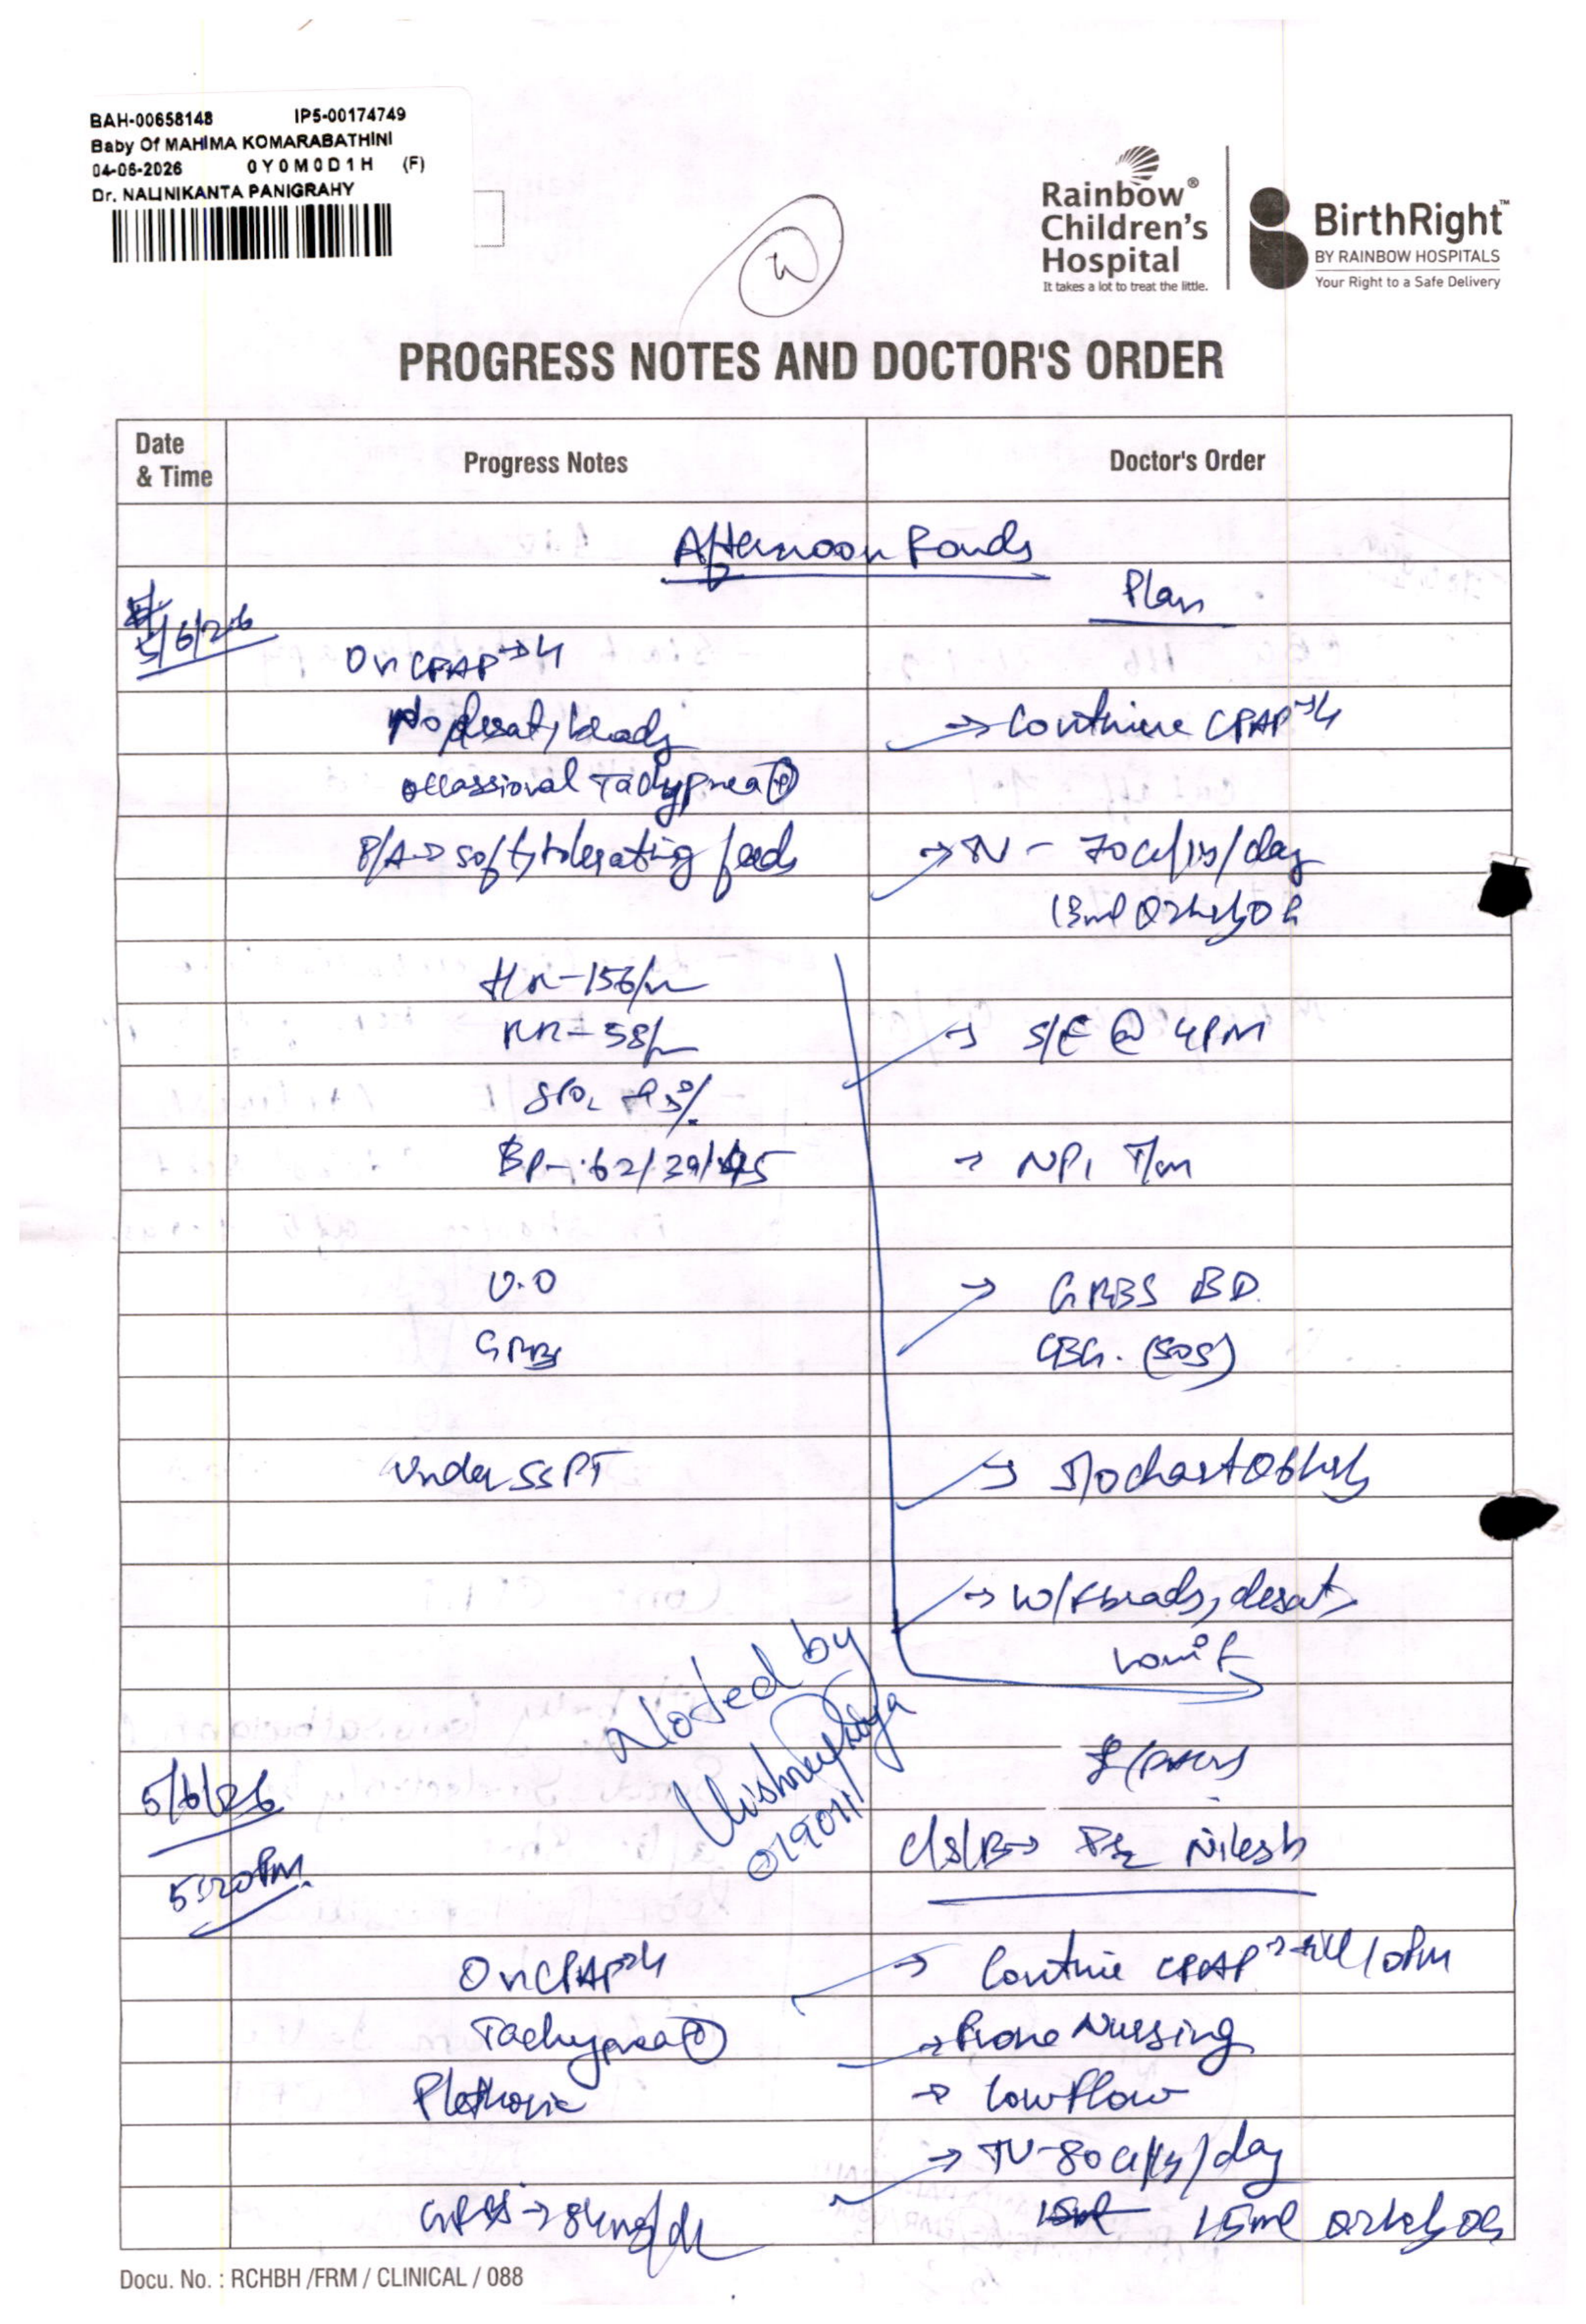 BAH-00658148 IP5-00174749
Baby Of MAHIMA KOMARABATHINI
04-06-2026 0Y0M0D1H (F)
Dr. NALINIKANTA PANIGRAHY
Rainbow®
Children's
Hospital
It takes a lot to treat the little.
BirthRight™
BY RAINBOW HOSPITALS
Your Right to a Safe Delivery
PROGRESS NOTES AND DOCTOR'S ORDER
Date & Time Progress Notes Doctor's Order
Afternoon Rounds
Plan
5/6/26
On CPAP→4
No desat, brady → Continue CPAP→4
occassional Tachypnea ⊕
P/A→ soft, tolerating feeds → TV - 70cc/kg/day
13ml Q2hrly OG
HR-156/m
RR-58/m → S/E @ 4PM
SPO2 95%
BP- 62/39/45 → NP1 T/m
U.O → GRBS BD
GRBS CBG. (SOS)
Under SSPT → I/O chart Q6hrly
→ W/f brady, desat,
vomit
Noted by
019011
5/6/26
5:20PM
C/S/B→ Dr Nilesh
On CPAP→4 → Continue CPAP→till 10PM
Tachypnea ⊕ → Prone Nursing
Plethoric → Low flow
→ TV-80cc/kg/day
GRBS→84mg/dL 15ml 15ml Q2hrly OG
Docu. No. : RCHBH /FRM / CLINICAL / 088